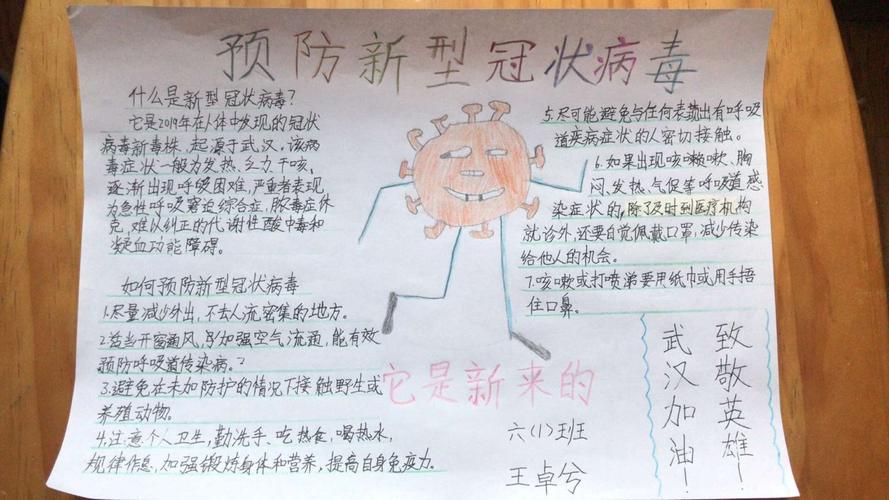 预防新型冠状病毒
什么是新型冠状病毒?
它是2019年在人体中发现的冠状
病毒新毒株,起源于武汉,该病
毒症状一般为发热、乏力、干咳,
逐渐出现呼吸困难,严重者表现
为急性呼吸窘迫综合症,脓毒症休
克,难以纠正的代谢性酸中毒和
凝血功能障碍。
如何预防新型冠状病毒
1.尽量减少外出,不去人流密集的地方。
2.适当开窗通风,加强空气流通,能有效
预防呼吸道传染病。
3.避免在未加防护的情况下接触野生或
养殖动物。
4.注意个人卫生,勤洗手、吃热食,喝热水,
规律作息,加强锻炼身体和营养,提高自身免疫力。
5.尽可能避免与任何表现出有呼吸
道疾病症状的人密切接触。
6.如果出现咳嗽、胸
闷、发热、气促等呼吸道感
染症状的,除了及时到医疗机构
就诊外,还要自觉佩戴口罩,减少传染
给他人的机会。
7.咳嗽或打喷嚏要用纸巾或用手捂
住口鼻。
它是新来的
六(1)班
王卓兮
致敬英雄!
武汉加油!